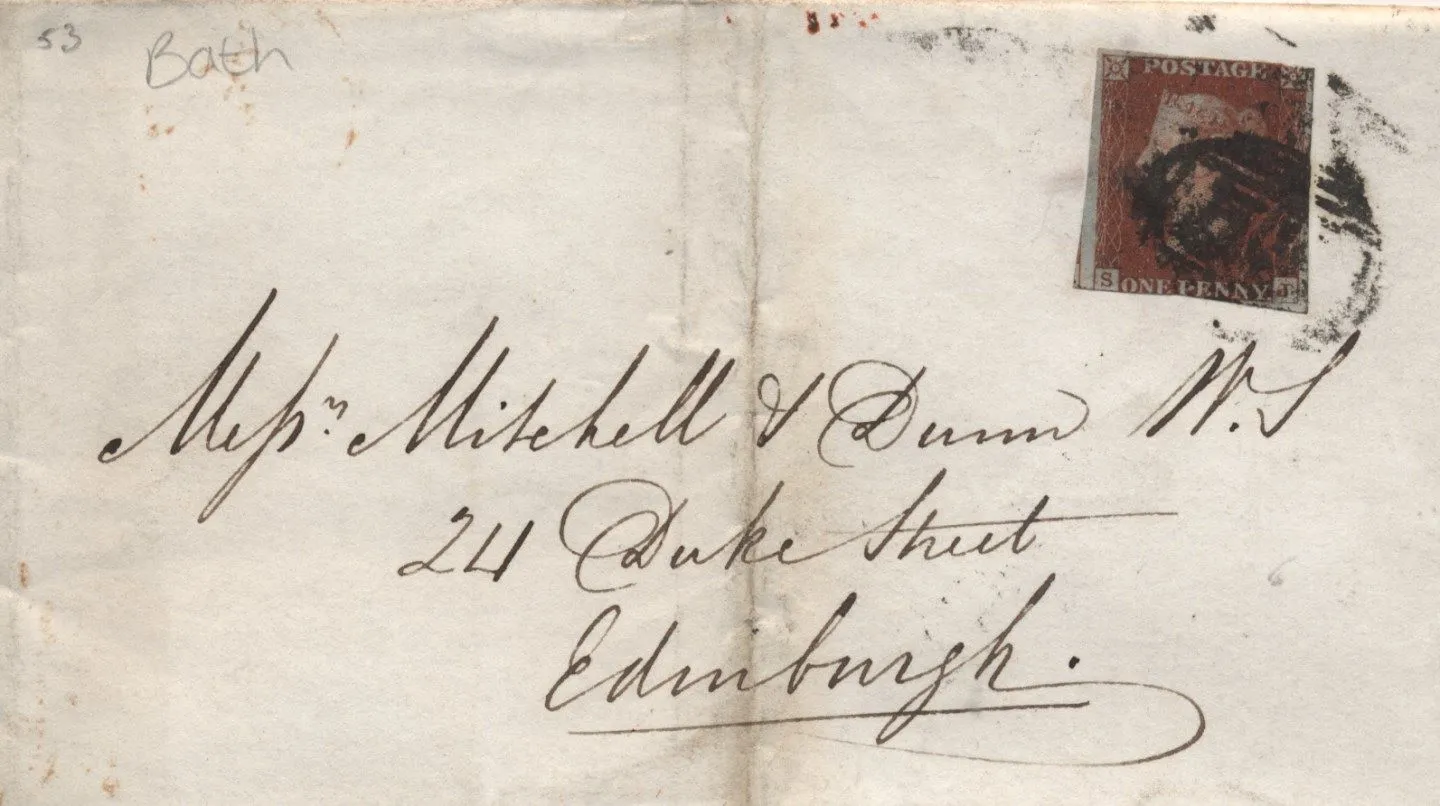 53
Bath
POSTAGE
S ONE PENNY
Meſsrs Mitchell & Dunn W.S
24 Duke Street
Edinburgh.